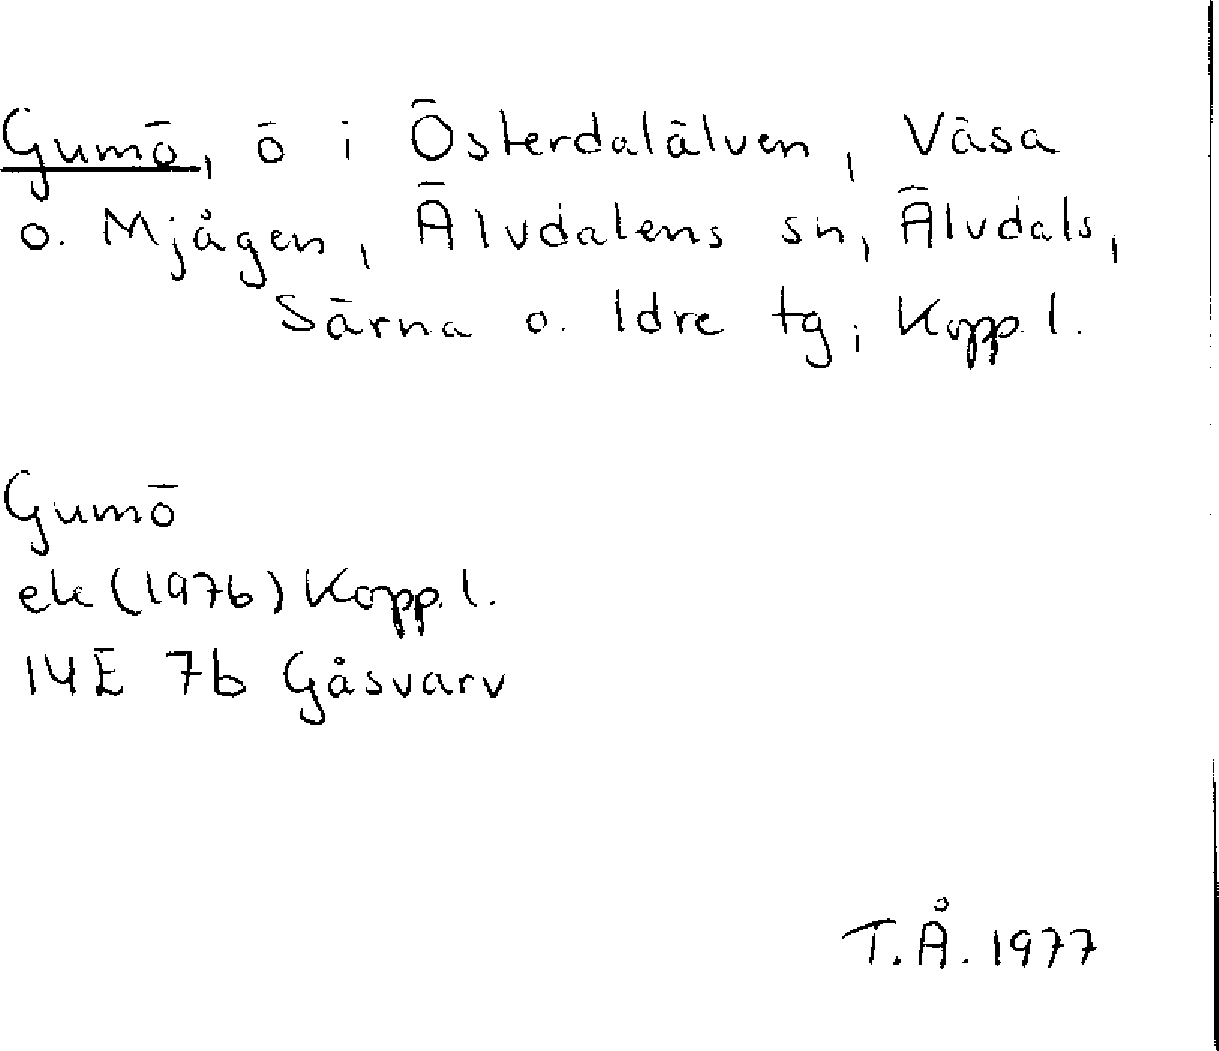 Gumö, ö i Österdalälven, Väsa
o. Mjågen, Älvdalens sn, Älvdals,
Särna o. Idre tg, Kopp. l.
Gumö
ek (1976) Kopp. l.
14E 7b Gåsvarv
T.Å. 1977